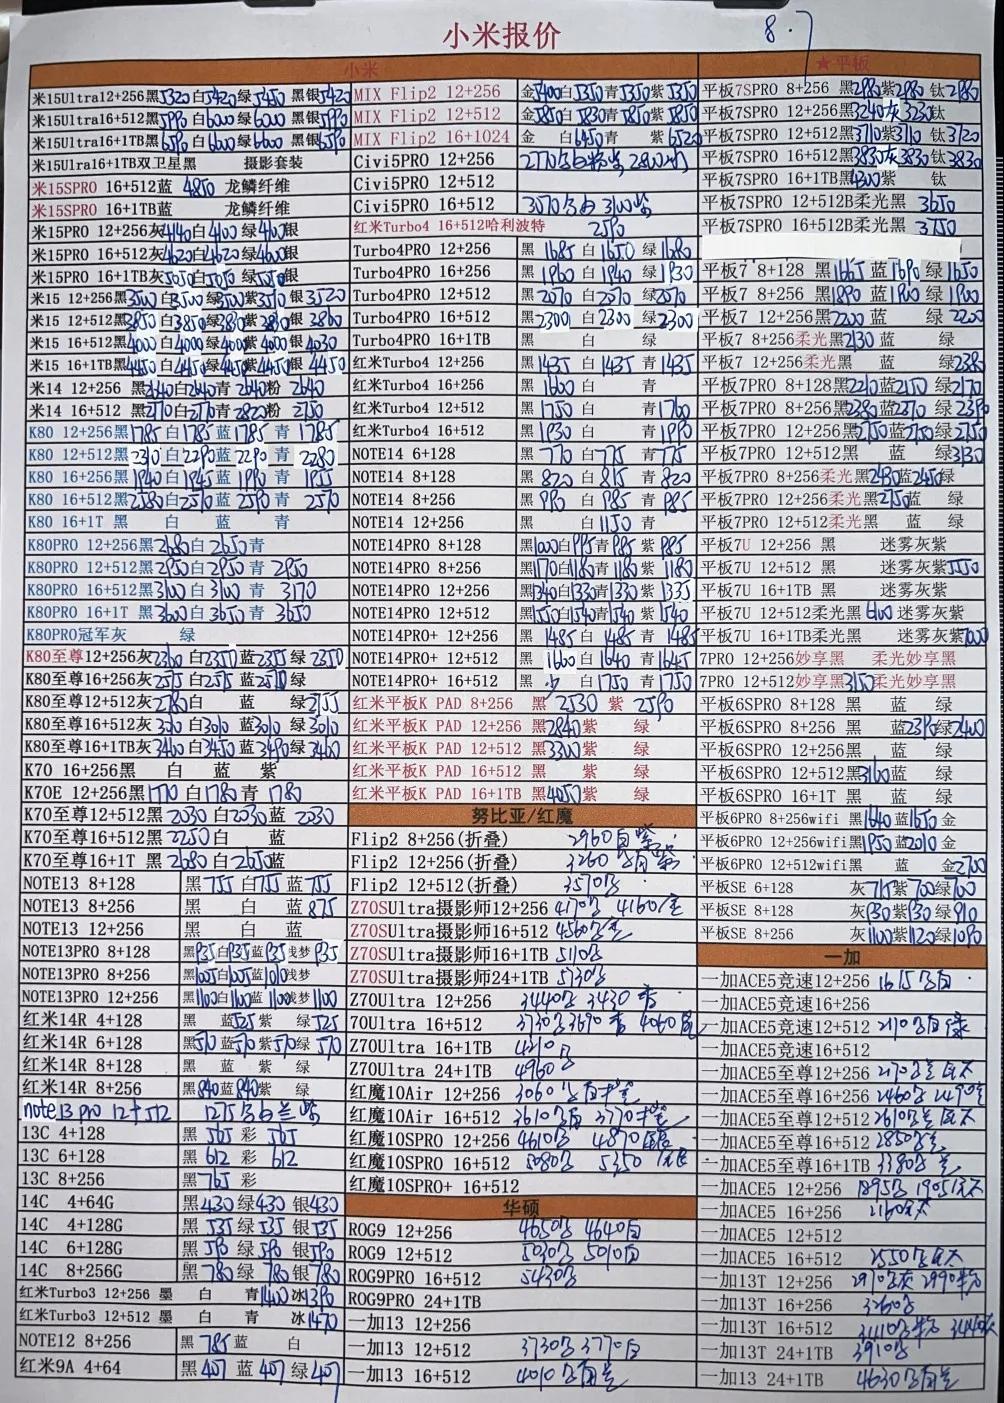 小米报价
8.7
小米
米15Ultra12+256黑5320白5420绿5450 黑银5420
米15Ultra16+512黑5990白6000绿6000 黑银5990
米15Ultra16+1TB黑6590白6600绿6600 黑银6590
米15Ulra16+1TB双卫星黑 摄影套装
米15SPRO 16+512蓝 4850 龙鳞纤维
米15SPRO 16+1TB蓝 龙鳞纤维
米15PRO 12+256灰4140白4100绿4100银
米15PRO 16+512灰4620白4620绿4600银
米15PRO 16+1TB灰5050白5050绿5050银
米15 12+256黑3500白3500绿3500紫3510银3520
米15 12+512黑3850白3850绿3830紫3830银3860
米15 16+512黑4000白4000绿4000紫4000银4030
米15 16+1TB黑4450白4450绿4450紫4450银4450
米14 12+256 黑2640白2640青2640粉2640
米14 16+512 黑2770白2770青2820粉2750
K80 12+256黑1785白1785蓝1785青1785
K80 12+512黑2310白2290蓝2290青2280
K80 16+256黑1940白1945蓝1990青1955
K80 16+512黑2580白2570蓝2590青2570
K80 16+1T 黑 白 蓝 青
K80PRO 12+256黑2680白2650青
K80PRO 12+512黑2950白2950青2950
K80PRO 16+512黑3100白3100青3170
K80PRO 16+1T 黑3600白3650青3650
K80PRO冠军灰 绿
K80至尊12+256灰2360白2350蓝2355绿2350
K80至尊16+256灰2575白2575蓝2570绿
K80至尊12+512灰2780白 蓝 绿2755
K80至尊16+512灰3030白3010蓝3010绿3010
K80至尊16+1TB灰3460白3450蓝3490绿3460
K70 16+256黑 白 蓝 紫
K70E 12+256黑1770白1780青1780
K70至尊12+512黑2030白2030蓝2030
K70至尊16+512黑2250白 蓝
K70至尊16+1T 黑2680白2650蓝
NOTE13 8+128 黑755白755蓝755
NOTE13 8+256 黑 白 蓝875
NOTE13 12+256 黑 白 蓝
NOTE13PRO 8+128 黑935白935蓝935浅梦935
NOTE13PRO 8+256 黑1005白1005蓝1010浅梦
NOTE13PRO 12+256 黑1100白1100蓝1100浅梦1100
红米14R 4+128 黑 蓝525紫 绿525
红米14R 6+128 黑570蓝570紫570绿570
红米14R 8+128 黑 蓝 紫 绿
红米14R 8+256 黑840蓝840紫 绿
note13 pro 12+512 1275黑白兰紫
13C 4+128 黑565彩565
13C 6+128 黑612彩612
13C 8+256 黑765彩
14C 4+64G 黑430绿430银430
14C 4+128G 黑535绿535银535
14C 6+128G 黑590绿590银590
14C 8+256G 黑780绿780银780
红米Turbo3 12+256 墨 白 青1400冰1390
红米Turbo3 12+512 墨 白 青 冰1470
NOTE12 8+256 黑785蓝 白
红米9A 4+64 黑407蓝407绿407
MIX Flip2 12+256 金5400白5350青5350紫5350
MIX Flip2 12+512 金5850白5830青5850紫5850
MIX Flip2 16+1024 金 白6450青 紫6520
Civi5PRO 12+256
Civi5PRO 12+512
Civi5PRO 16+512
红米Turbo4 16+512哈利波特 2590
Turbo4PRO 12+256 黑1685白1650绿1680
Turbo4PRO 16+256 黑1960白1940绿1930
Turbo4PRO 12+512 黑2070白2070绿2070
Turbo4PRO 16+512 黑2300白2300绿2300
Turbo4PRO 16+1TB 黑 白 绿
红米Turbo4 12+256 黑1435白1435青1435
红米Turbo4 16+256 黑1600白 青
红米Turbo4 12+512 黑1750白 青1760
红米Turbo4 16+512 黑1930白 青
NOTE14 6+128 黑770白775青775
NOTE14 8+128 黑820白815青820
NOTE14 8+256 黑990白985青985
NOTE14 12+256 黑 白1150青
NOTE14PRO 8+128 黑1000白995青985紫985
NOTE14PRO 8+256 黑1170白1180青1180紫1180
NOTE14PRO 12+256 黑1340白1330青1330紫1335
NOTE14PRO 12+512 黑1550白1540青1540紫1540
NOTE14PRO+ 12+256 黑1485白1485青1485
NOTE14PRO+ 12+512 黑1660白1640青1645
NOTE14PRO+ 16+512 黑少 白1750青1750
红米平板K PAD 8+256 黑2530紫2590
红米平板K PAD 12+256 黑2840紫 绿
红米平板K PAD 12+512 黑3300紫 绿
红米平板K PAD 16+512 黑 紫 绿
红米平板K PAD 16+1TB 黑4050紫 绿
努比亚/红魔
Flip2 8+256(折叠) 2960白紫
Flip2 12+256(折叠) 3260
Flip2 12+512(折叠) 3570黑
Z70SUltra摄影师12+256 4170黑 4160
Z70SUltra摄影师16+512 4560
Z70SUltra摄影师16+1TB 5110黑
Z70SUltra摄影师24+1TB 5730黑
Z70Ultra 12+256 3440黑 3430
70Ultra 16+512 3730黑3690 4060
Z70Ultra 16+1TB 4210黑
Z70Ultra 24+1TB 4960黑
红魔10Air 12+256 3060
红魔10Air 16+512 3610黑白 3770
红魔10SPRO 12+256 4610黑 4870
红魔10SPRO 16+512 5080黑 5350
红魔10SPRO+ 16+512
华硕
ROG9 12+256 4650黑 4640白
ROG9 12+512 5030黑 5010白
ROG9PRO 16+512 5430黑
ROG9PRO 24+1TB
一加13 12+256
一加13 12+512 3730黑3770白
一加13 16+512 4010黑白兰
★平板
平板7SPRO 8+256 黑2980紫2980钛2980
平板7SPRO 12+256黑3240灰3230钛
平板7SPRO 12+512黑3710紫3710钛3720
平板7SPRO 16+512黑3830灰3830钛3830
平板7SPRO 16+1TB黑4300紫 钛
平板7SPRO 12+512B柔光黑 3650
平板7SPRO 16+512B柔光黑 3750
平板7 8+128 黑1665蓝1690绿1650
平板7 8+256 黑1890蓝1900绿1900
平板7 12+256黑2200蓝 绿2200
平板7 8+256柔光黑2130蓝 绿
平板7 12+256柔光黑 蓝 绿2380
平板7PRO 8+128黑2210蓝2150绿2170
平板7PRO 8+256黑2380蓝2370绿2390
平板7PRO 12+256黑2750蓝2750绿2750
平板7PRO 12+512黑 蓝 绿3130
平板7PRO 8+256柔光黑2430蓝2450绿
平板7PRO 12+256柔光黑2750蓝 绿
平板7PRO 12+512柔光黑 蓝 绿
平板7U 12+256 黑 迷雾灰紫
平板7U 12+512 黑 迷雾灰紫5550
平板7U 16+1TB 黑 迷雾灰紫
平板7U 12+512柔光黑6100迷雾灰紫
平板7U 16+1TB柔光黑 迷雾灰紫7000
7PRO 12+256妙享黑 柔光妙享黑
7PRO 12+512妙享黑3150柔光妙享黑
平板6SPRO 8+128 黑 蓝 绿
平板6SPRO 8+256 黑 蓝2390绿2400
平板6SPRO 12+256黑 蓝 绿
平板6SPRO 12+512黑3160蓝 绿
平板6SPRO 16+1T 黑 蓝 绿
平板6PRO 8+256wifi 黑1640蓝1650金
平板6PRO 12+256wifi黑1950蓝2010金
平板6PRO 12+512wifi黑 蓝 金2700
平板SE 6+128 灰715紫700绿700
平板SE 8+128 灰930紫930绿910
平板SE 8+256 灰1100紫1120绿1090
一加
一加ACE5竞速12+256 1615黑白
一加ACE5竞速16+256
一加ACE5竞速12+512 2110黑白绿
一加ACE5竞速16+512
一加ACE5至尊12+256 2170
一加ACE5至尊16+256 2460黑 2490
一加ACE5至尊12+512 2610
一加ACE5至尊16+512 2850黑
一加ACE5至尊16+1TB 3380黑
一加ACE5 12+256 1895黑 1905
一加ACE5 16+256 2160
一加ACE5 12+512
一加ACE5 16+512 2550黑
一加13T 12+256 2910黑灰 2990粉
一加13T 16+256 3260黑
一加13T 16+512 3410黑粉
一加13T 24+1TB 3910黑
一加13 24+1TB 4630黑白兰